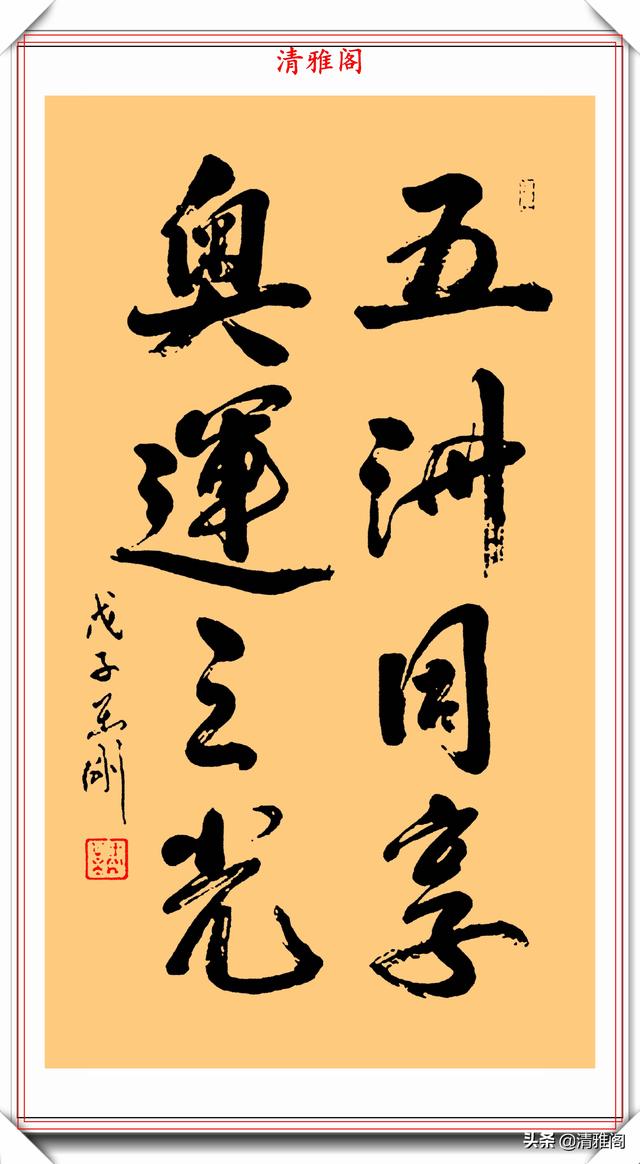 清雅阁
五洲同享
奥運之光
戊子
头条 @清雅阁